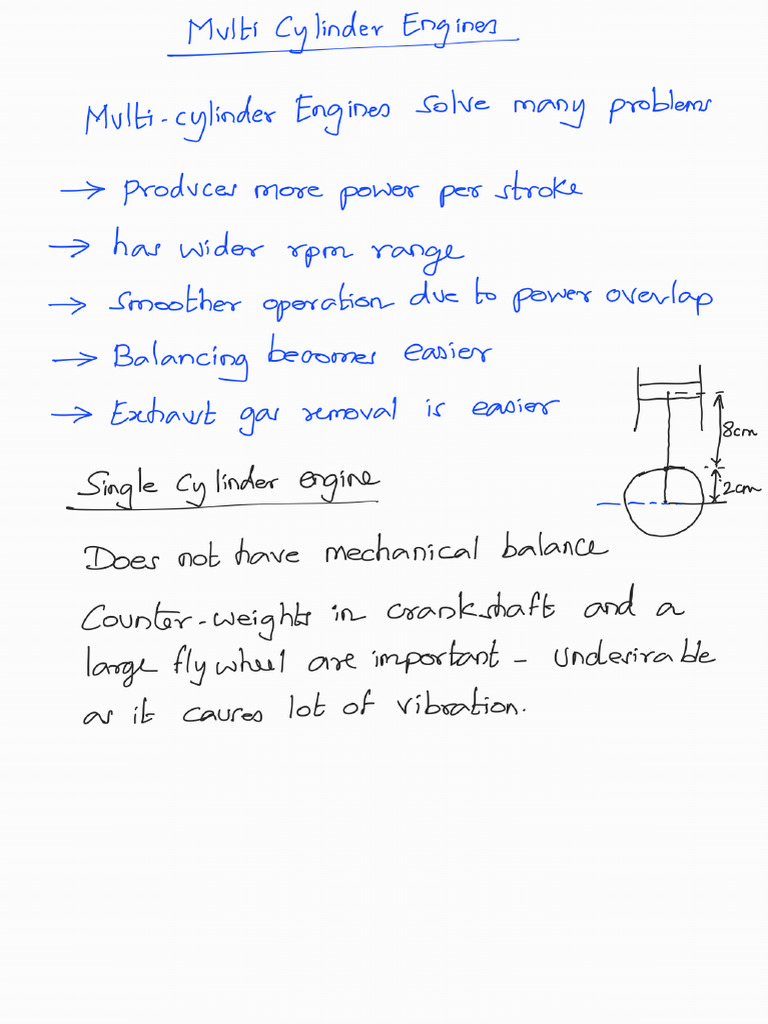 Multi Cylinder Engines
Multi-cylinder Engines solve many problems
→ produces more power per stroke
→ has wider rpm range
→ smoother operation due to power overlap
→ Balancing becomes easier
→ Exhaust gas removal is easier
8cm
2cm
Single cylinder engine
Does not have mechanical balance
Counter-weights in crankshaft and a
large flywheel are important - undesirable
as it causes lot of vibration.